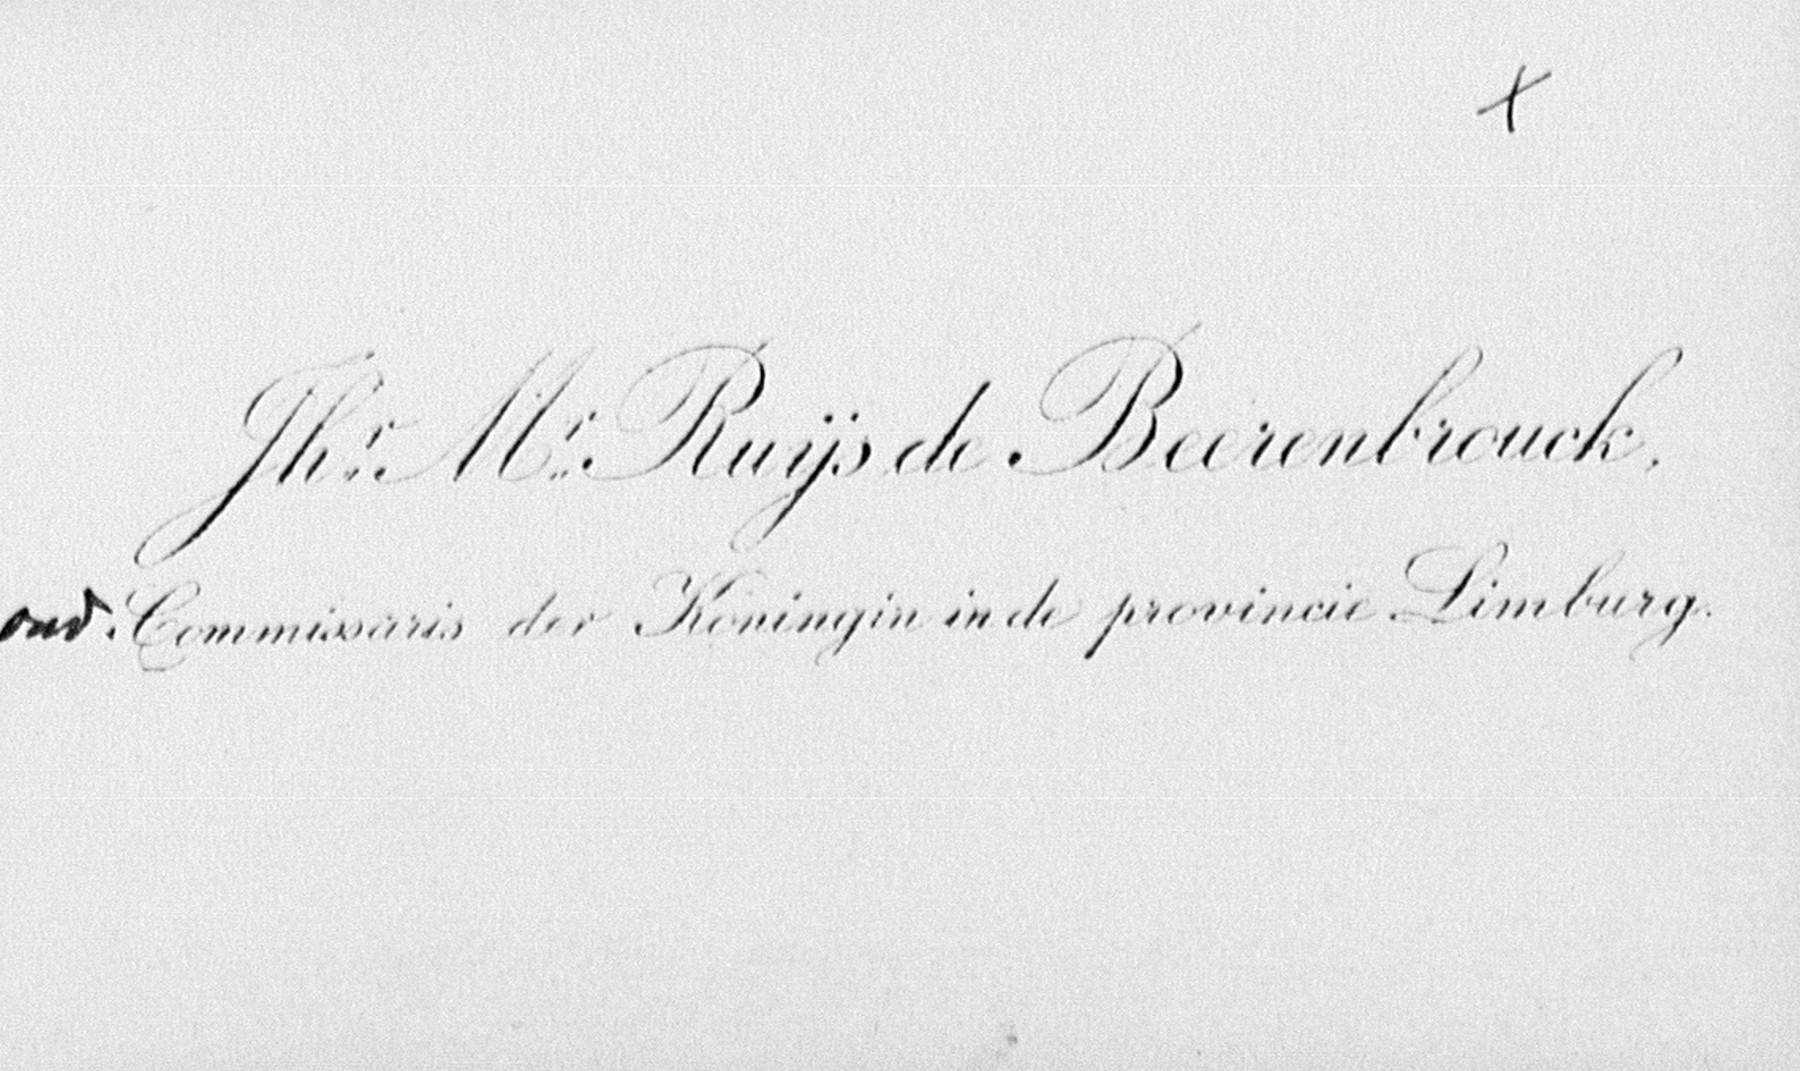 x
Jhr. Mr. Ruijs de Beerenbrouck,
oud. Commissaris der Koningin in de provincie Limburg.